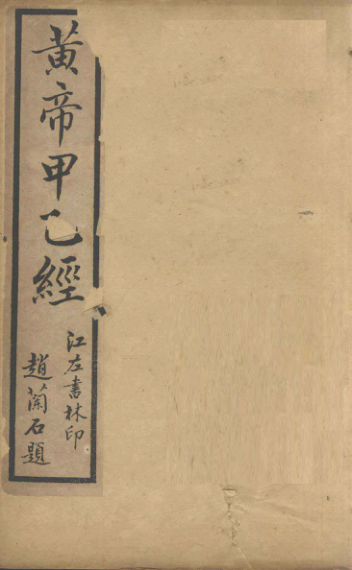 黄帝甲乙經
江左書林印
趙蘭石題